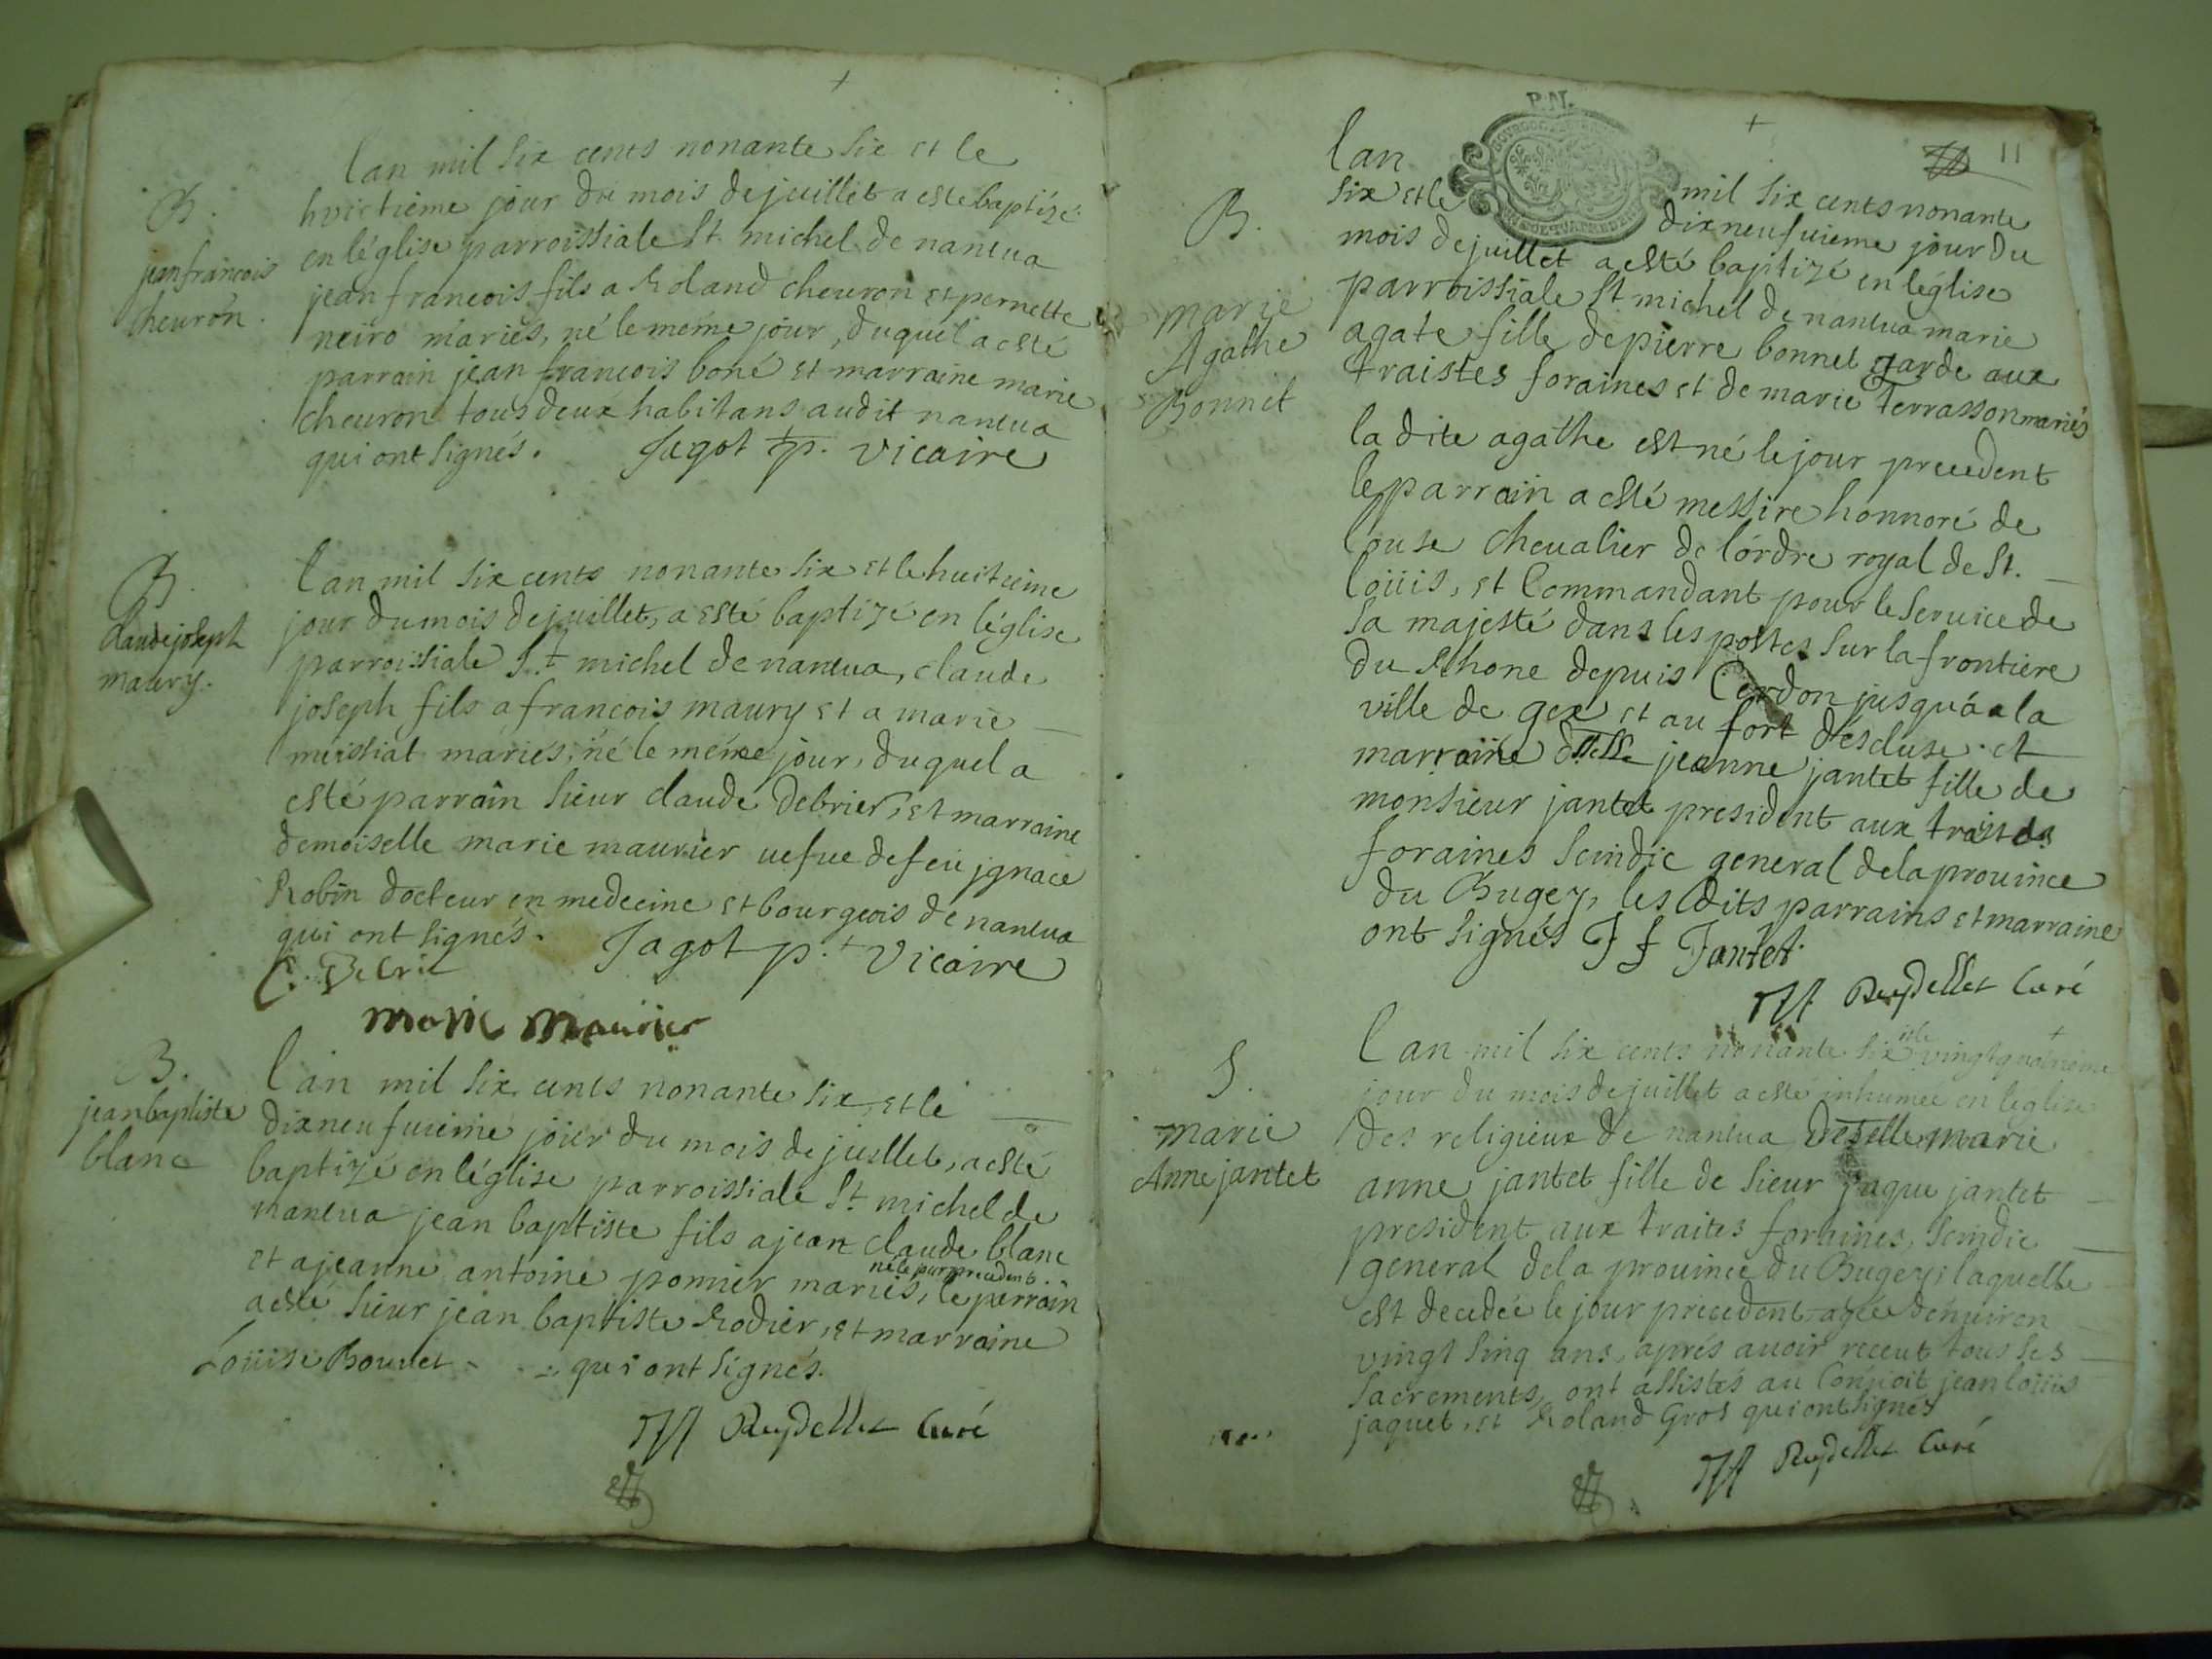 B.
jean francois
cheuron.
lan mil six cents nonante six et le
huictieme jour du mois de juillet a esté baptizé
en léglise parroissiale St. michel de nantua
jean francois fils a Roland cheuron et pernette
neiro mariés, né le meme jour, duquel a esté
parrain jean francois boné et marraine marie
cheuron tous deux habitans audit nantua
qui ont signés. Jagot p. vicaire
B.
claude joseph
maury.
lan mil six cents nonante six et le huitieme
jour du mois de juillet, a esté baptizé en léglise
parroissiale St michel de nantua, claude
joseph fils a francois maury et a marie
missiat mariés, né le méme jour, duquel a
esté parrain sieur claude debrier, et marraine
demoiselle marie maurier uefue de feu jgnace
Robin docteur en medecine et bourgeois de nantua
qui ont signés. Jagot p.t vicaire
C.
marie maurier
B.
jean baptiste
blanc
lan mil six cents nonante six, et le
dixneufuieme jour du mois de juillet, a esté
baptizé en léglise parroissiale St. michel de
nantua jean baptiste fils a jean claude blanc
né le jour precedent
et a jeanne antoine pomier mariés, le parrain
a esté sieur jean baptiste Rodier, et marraine
Loüise Bouuet qui ont signés.
Reydellet Curé
P.N.
11
B.
marie
Agathe
Bonnet
lan mil six cents nonante
six et le dixneufuieme jour du
mois de juillet a esté baptizé en léglise
parroissiale St michel de nantua marie
agate fille de pierre bonnet garde aux
traistes foraines et de marie Terrasson mariés
la dite agathe est né le jour precedent
le parrain a esté messire honnoré de
louse chevalier de lórdre royal de St.
loüis, et Commandant pour le seruice de
sa majesté dans les postes sur la frontiere
du Rhone depuis Cordon jusquá a la
ville de gex et au fort déscluse. et
marraine d.lle jeanne jantet fille de
monsieur jantet president aux traistes
foraines scindic general de la prouince
du Bugey, les dits parrains et marraine
ont signés J f Jantet.
Reydellet Curé
S.
marie
Anne jantet
lan mil six cents nonante six et le vingt quatrieme
jour du mois de juillet a esté inhumée en leglise
des religieux de nantua deselle marie
anne jantet fille de sieur jaque jantet
president aux traites foraines, scindic
general de la prouince du Bugey, laquelle
est decedée le jour precedent agée dénuiron
vingt sinq ans, aprés auoir receut tous ses
sacrements, ont assistés au Conuoit jean loüis
jaquet, et Roland Gros qui ont signés
Reydellet Curé